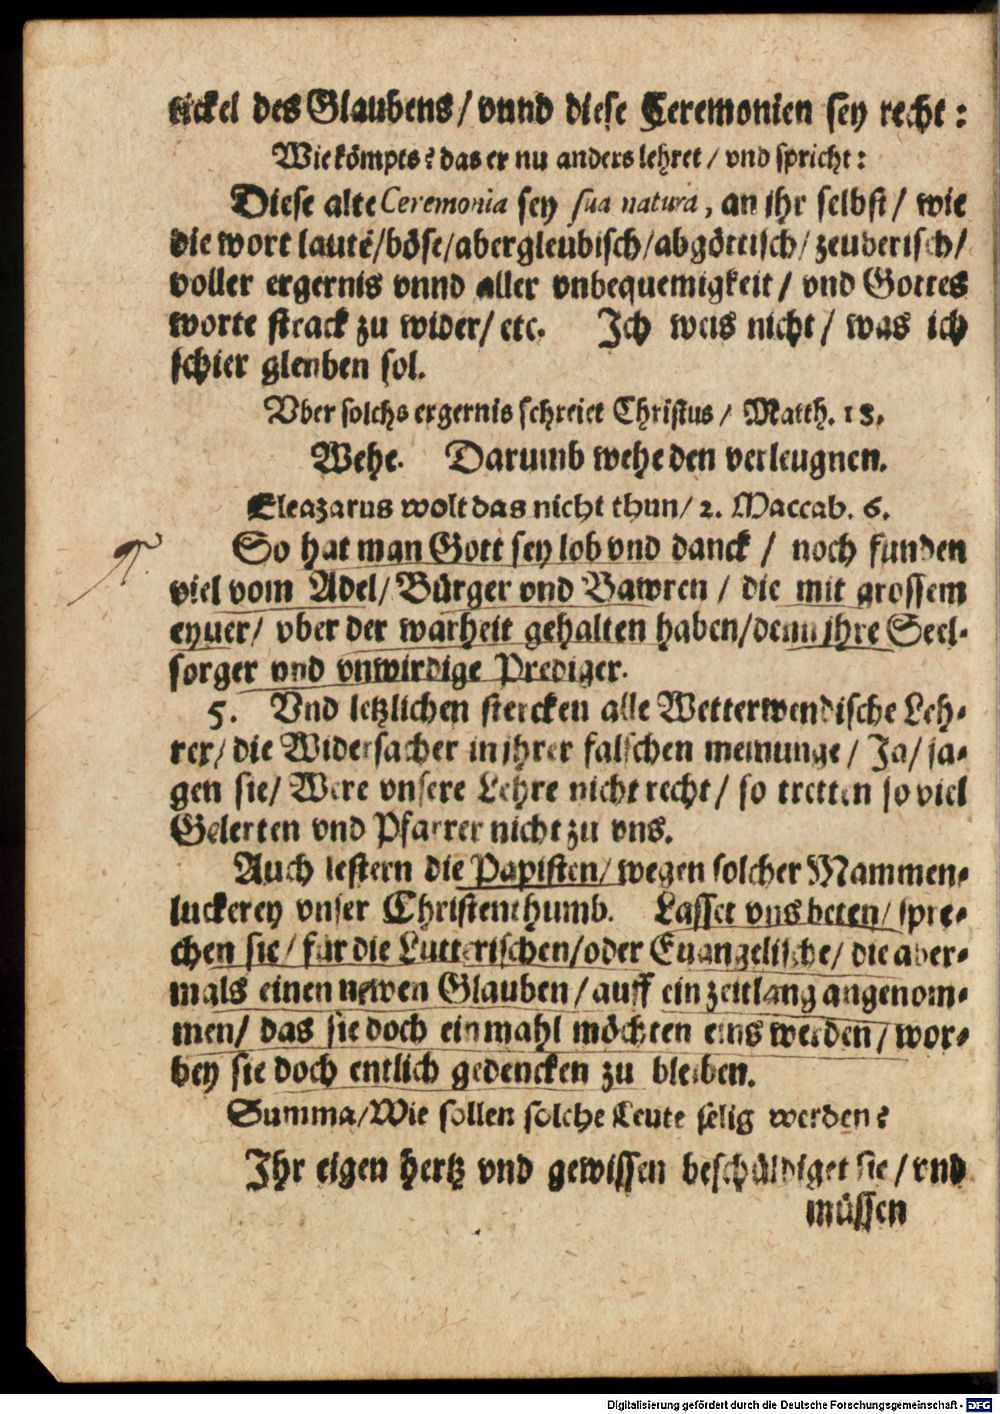 tickel des Glaubens/ vnnd diese Ceremonien sey recht:
Wie kömpts? das er nu anders lehret/ vnd spricht:
Diese alte Ceremonia sey sua natura, an jhr selbst/ wie
die wort lautē/böse/abergleubisch/abgöttisch/zeuberisch/
voller ergernis vnnd aller vnbequemigkeit/ vnd Gottes
worte strack zu wider/ etc. Ich weis nicht/ was ich
schier gleuben sol.
Vber solchs ergernis schreiet Christus/ Matth. 18.
Wehe. Darumb wehe den verleugnen.
Eleazarus wolt das nicht thun/ 2. Maccab. 6.
So hat man Gott sey lob vnd danck/ noch funden
viel vom Adel/ Bürger vnd Bawren/ die mit grossem
eyuer/ vber der warheit gehalten haben/denn jhre Seel-
sorger vnd vnwirdige Prediger.
5. Vnd letzlichen stercken alle Wetterwendische Leh-
rer/ die Widersacher in jhrer falschen meinunge/ Ja/ sa-
gen sie/ Were vnsere Lehre nicht recht/ so tretten so viel
Gelerten vnd Pfarrer nicht zu vns.
Auch lestern die Papisten/ wegen solcher Mammen-
luckerey vnser Christenthumb. Lasset vns beten/ spre-
chen sie/ für die Lutterischen/oder Euangelische/ die aber-
mals einen newen Glauben/ auff ein zeitlang angenom-
men/ das sie doch einmahl möchten eins werden/ wor-
bey sie doch entlich gedencken zu bleiben.
Summa/Wie sollen solche Leute selig werden?
Ihr eigen hertz vnd gewissen beschüldiget sie/ vnd
müssen
Digitalisierung gefördert durch die Deutsche Forschungsgemeinschaft - DFG